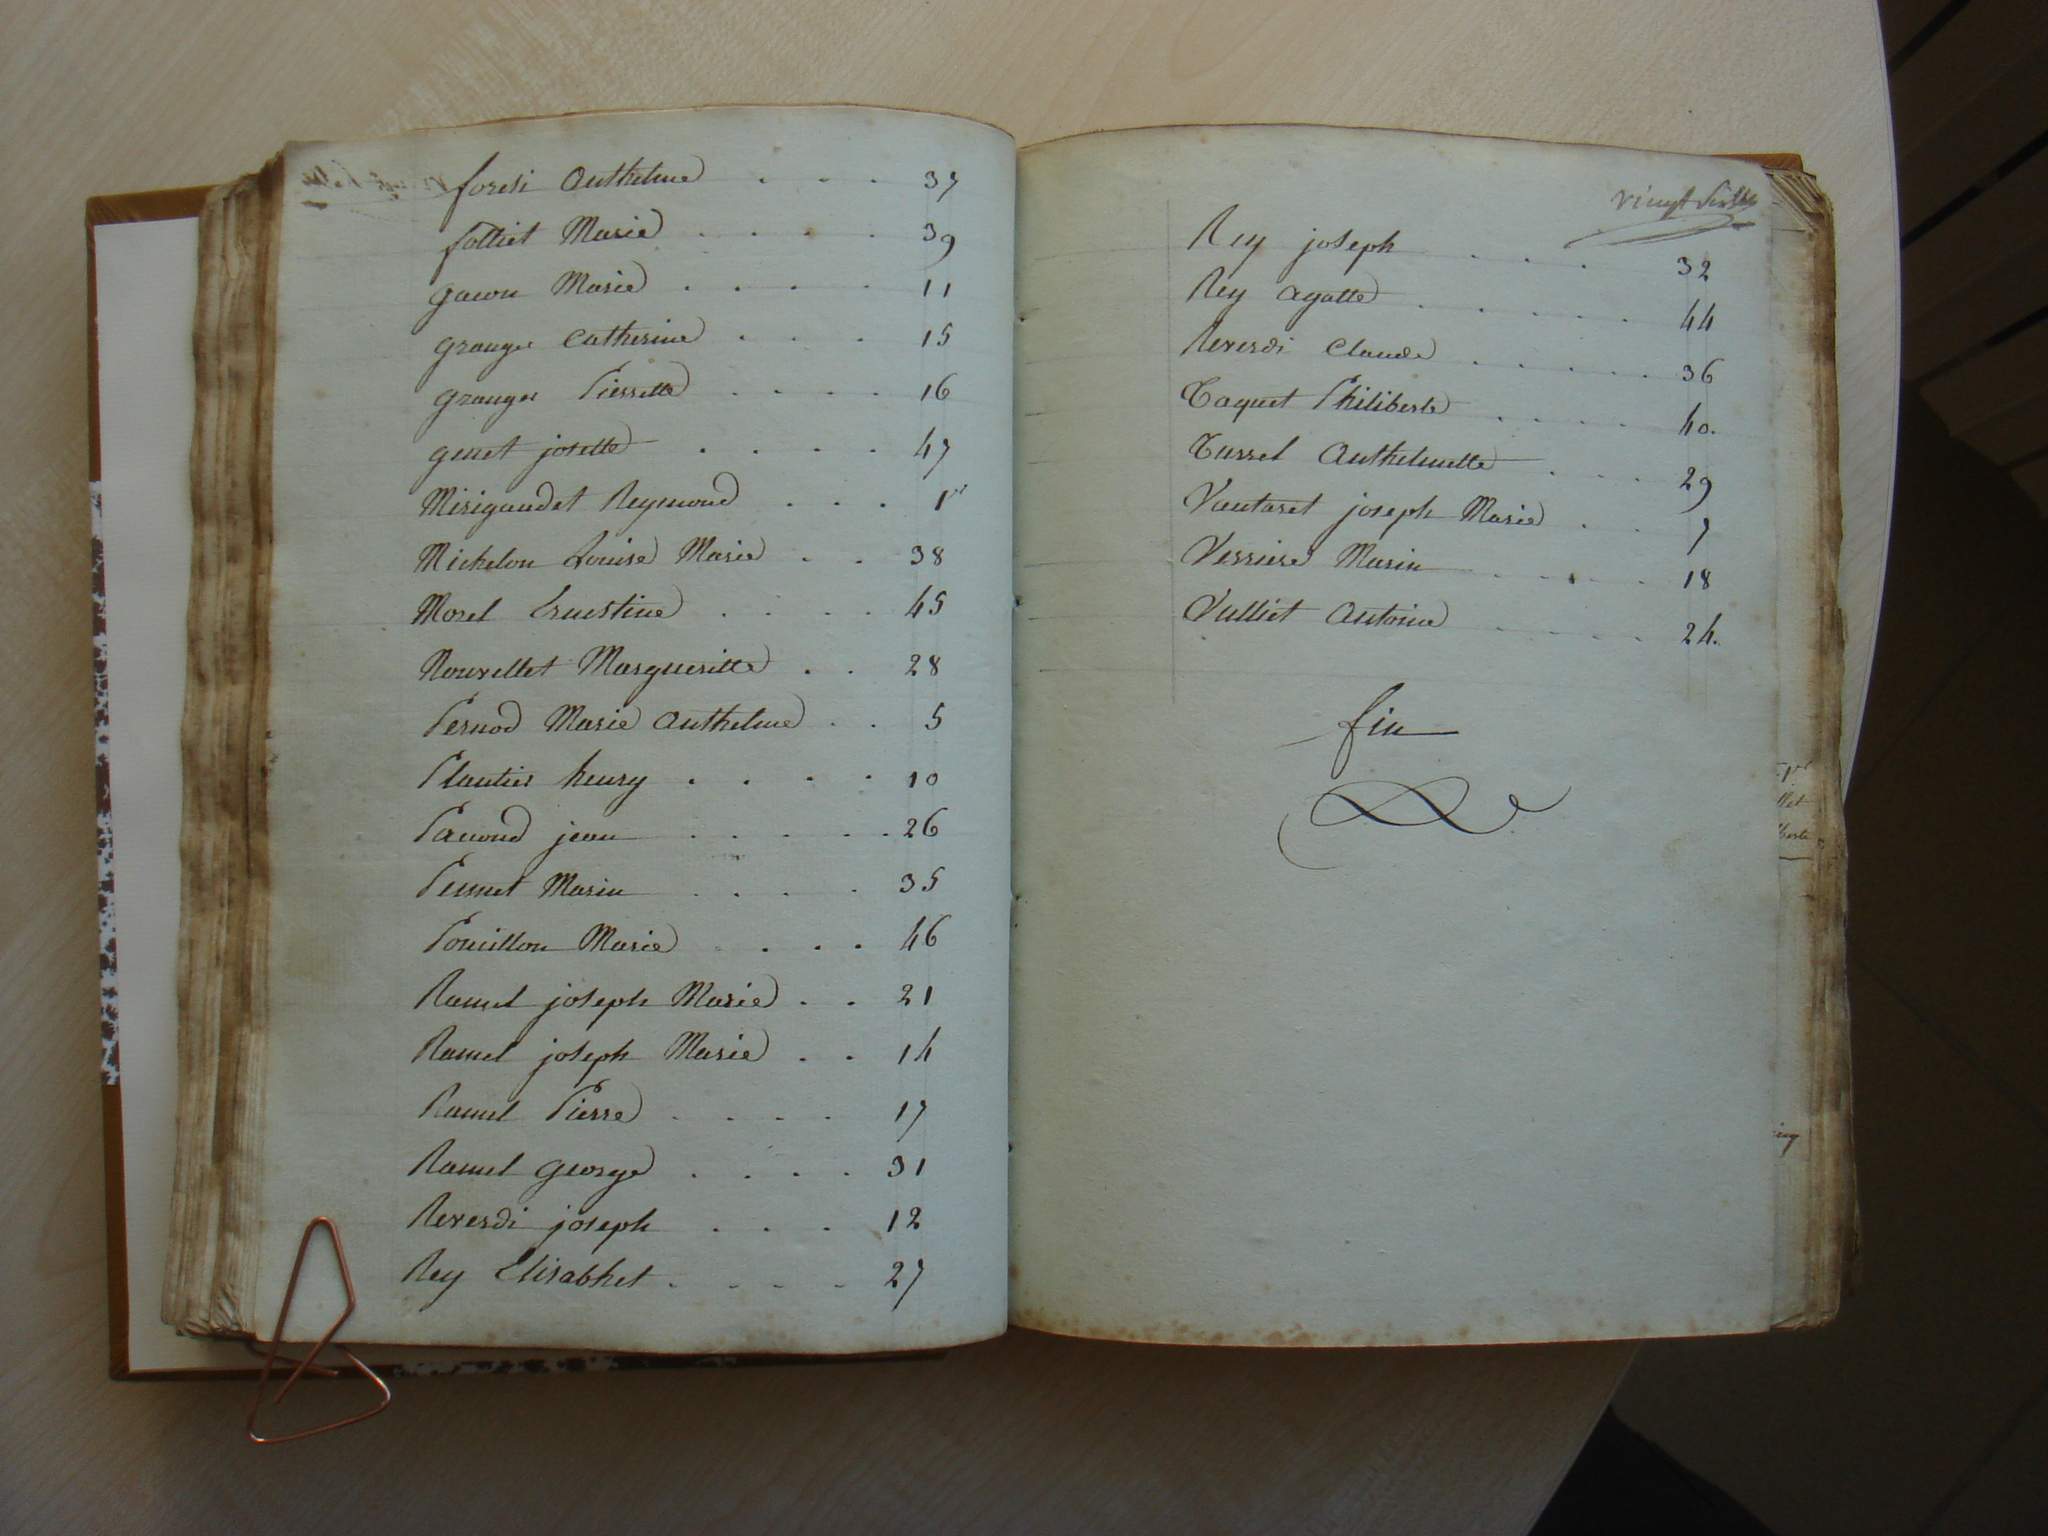 foresi Anthelme . . . 37
folliet Marie . . . . 39
gacon Marie . . . . 11
granger Catherine . . . 15
granger Pierrette . . . . 16
genet josette . . . . 47
Mirigaudet Reymond . . . 1er
Michelon Louise Marie . . 38
Morel Ernestine . . . . 45
Nouvellet Margueritte . . 28
Pernod Marie Anthelme . . 5
Plantier henry . . . . 10
Pacoud jean . . . . . 26
Pennet Marin . . . . 35
Pouillon Marie . . . . 46
Ramel joseph Marie . . 21
Ramel joseph Marie . . 14
Ramel Pierre . . . . 17
Ramel george . . . . 31
Reverdi joseph . . . 12
Rey Elisabhet . . . . 27
vingt
Rey joseph . . . 32
Rey agatte . . . . . 44
Reverdi Claude . . . . . 36
Taquet Philiberte . . . . 40.
Turrel Anthelmette . . . 29
Vautaret joseph Marie . . 7
Verriere Marin . . . . 18
Vulliet Antoine . . . . 24.
fin